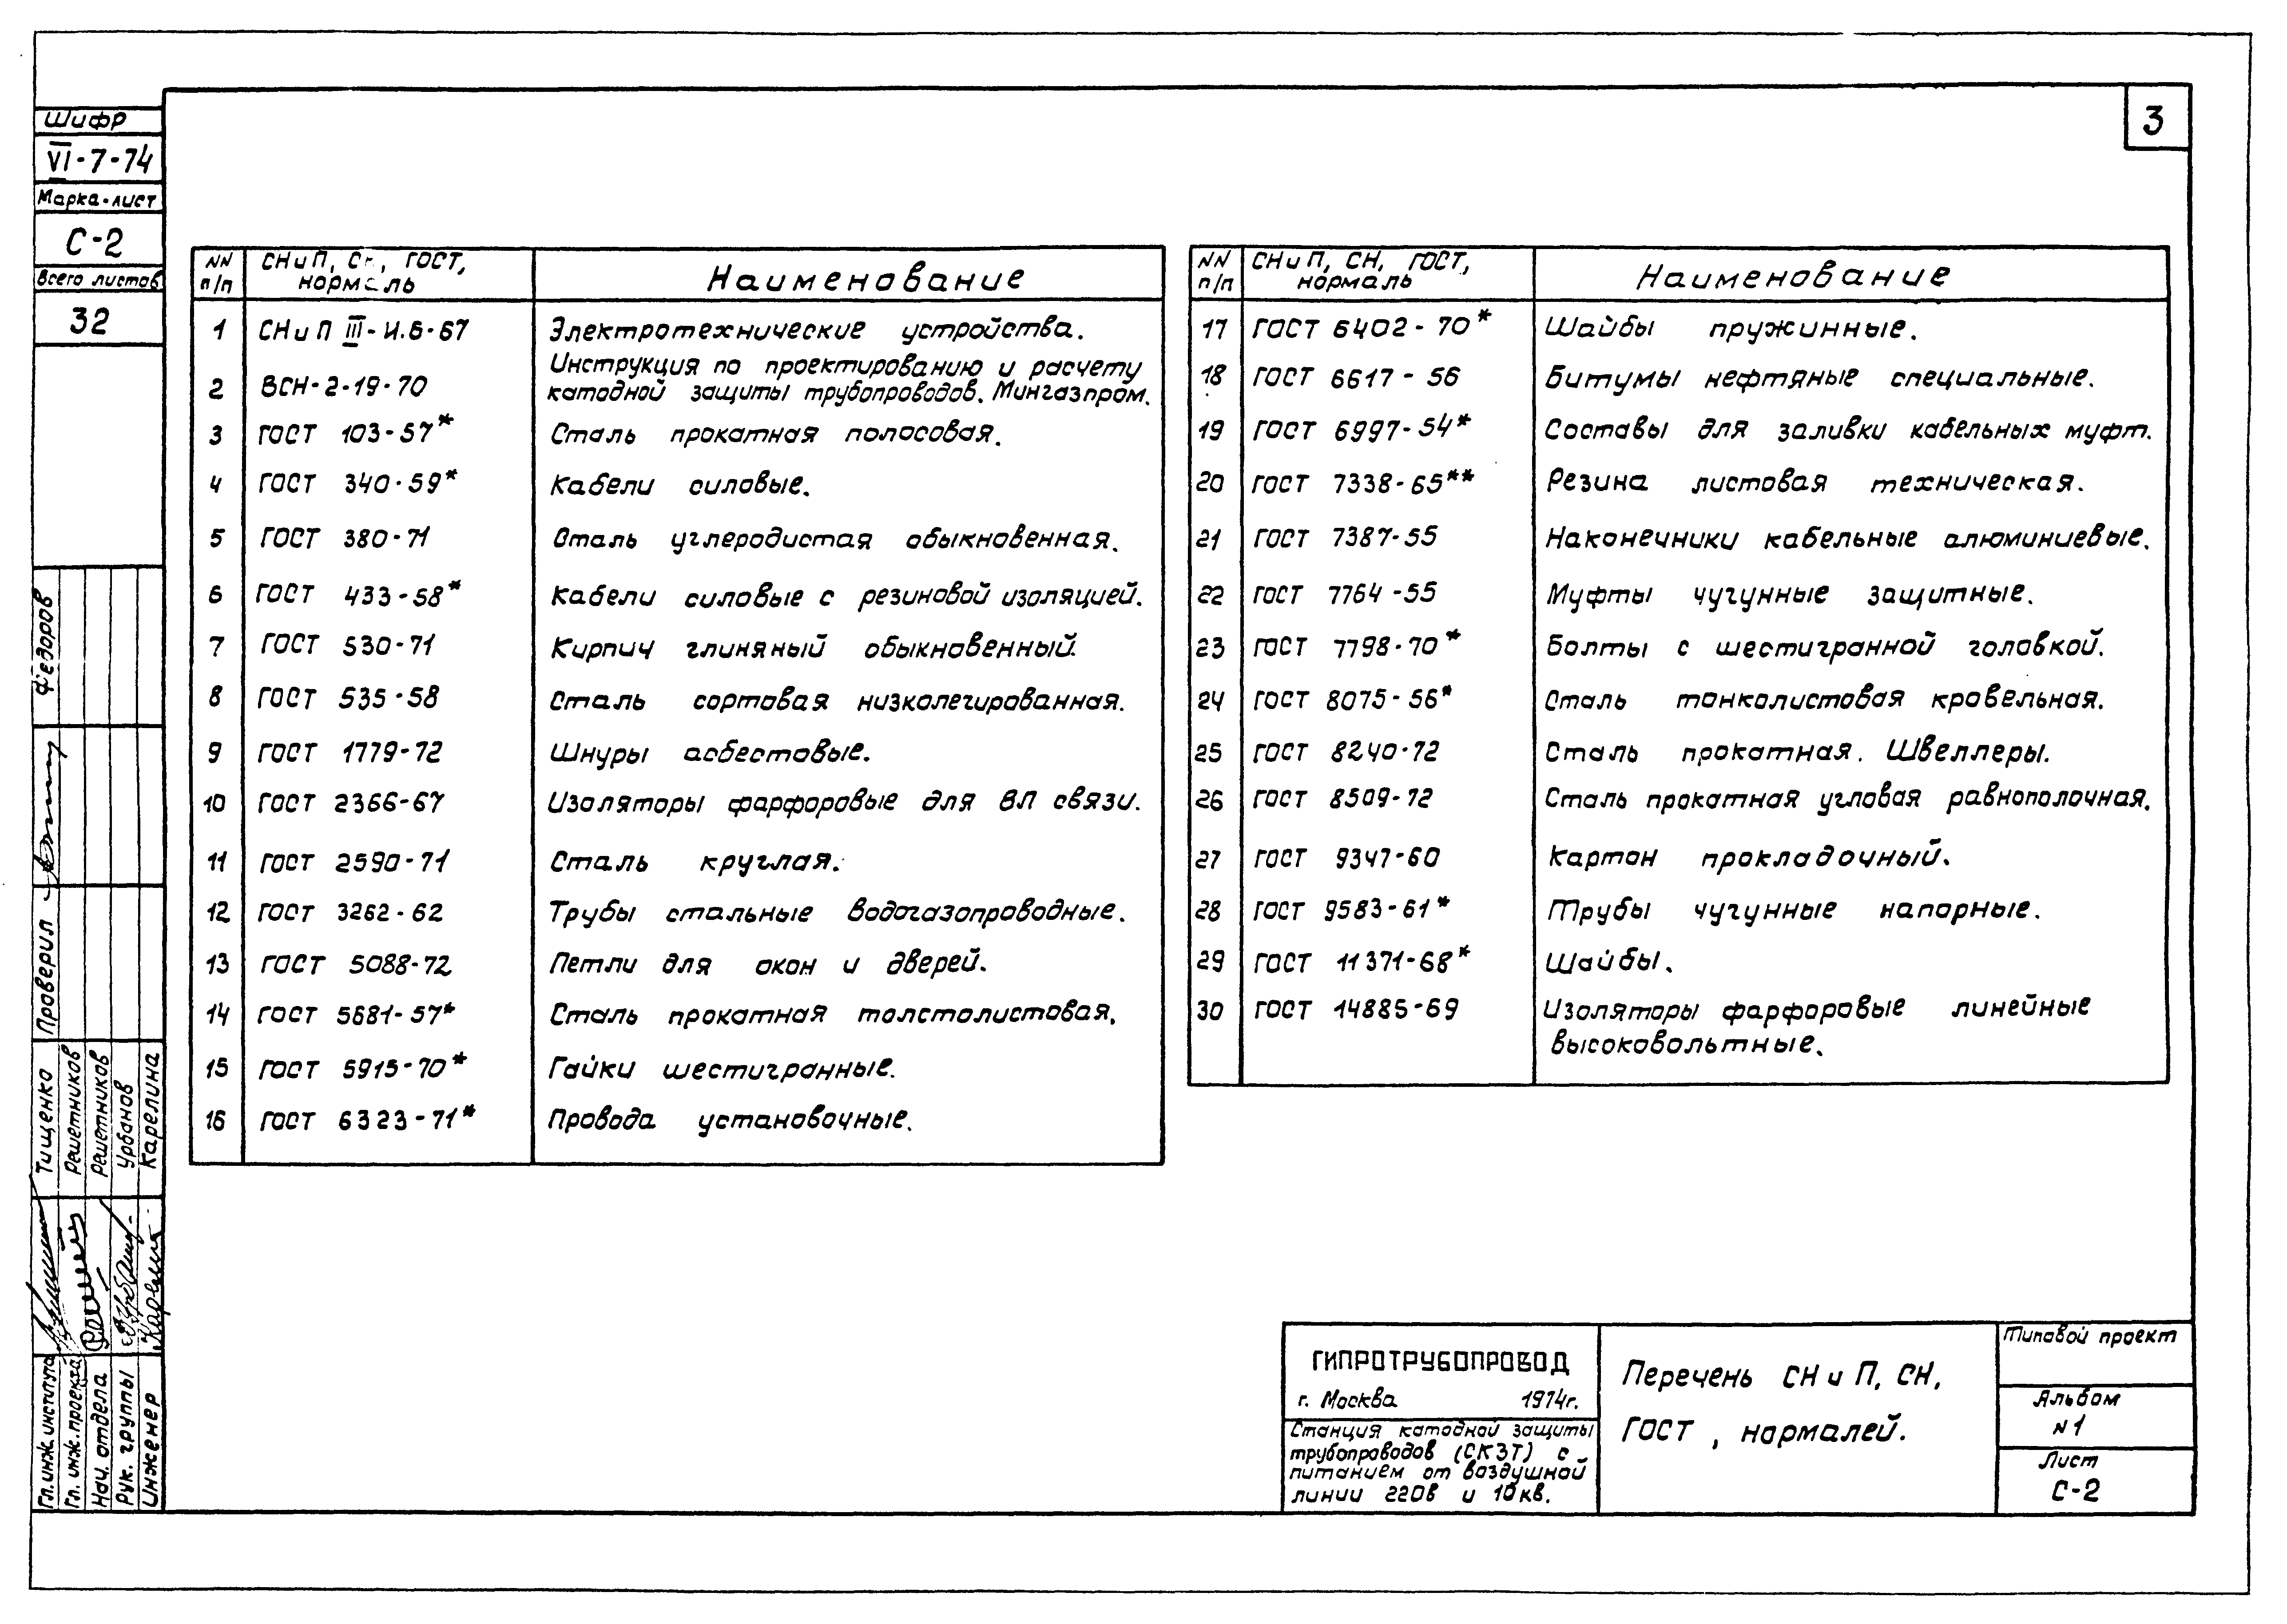 3
Шифр
VI-7-74
Марка-лист
С-2
Всего листов
32
NN п/п СНиП, СН, ГОСТ, нормаль Наименование
1 СНиП III-И.6-67 Электротехнические устройства.
2 ВСН-2-19-70 Инструкция по проектированию и расчету
катодной защиты трубопроводов. Мингазпром.
3 ГОСТ 103-57* Сталь прокатная полосовая.
4 ГОСТ 340-59* Кабели силовые.
5 ГОСТ 380-71 Сталь углеродистая обыкновенная.
6 ГОСТ 433-58* Кабели силовые с резиновой изоляцией.
7 ГОСТ 530-71 Кирпич глиняный обыкновенный.
8 ГОСТ 535-58 Сталь сортовая низколегированная.
9 ГОСТ 1779-72 Шнуры асбестовые.
10 ГОСТ 2366-67 Изоляторы фарфоровые для ВЛ связи.
11 ГОСТ 2590-71 Сталь круглая.
12 ГОСТ 3262-62 Трубы стальные водогазопроводные.
13 ГОСТ 5088-72 Петли для окон и дверей.
14 ГОСТ 5681-57* Сталь прокатная толстолистовая.
15 ГОСТ 5915-70* Гайки шестигранные.
16 ГОСТ 6323-71* Провода установочные.
NN п/п СНиП, СН, ГОСТ, нормаль Наименование
17 ГОСТ 6402-70* Шайбы пружинные.
18 ГОСТ 6617-56 Битумы нефтяные специальные.
19 ГОСТ 6997-54* Составы для заливки кабельных муфт.
20 ГОСТ 7338-65** Резина листовая техническая.
21 ГОСТ 7387-55 Наконечники кабельные алюминиевые.
22 ГОСТ 7764-55 Муфты чугунные защитные.
23 ГОСТ 7798-70* Болты с шестигранной головкой.
24 ГОСТ 8075-56* Сталь тонколистовая кровельная.
25 ГОСТ 8240-72 Сталь прокатная. Швеллеры.
26 ГОСТ 8509-72 Сталь прокатная угловая равнополочная.
27 ГОСТ 9347-60 Картон прокладочный.
28 ГОСТ 9583-61* Трубы чугунные напорные.
29 ГОСТ 11371-68* Шайбы.
30 ГОСТ 14885-69 Изоляторы фарфоровые линейные
высоковольтные.
Проверил Федоров
Гл. инж. института Тищенко
Гл. инж. проекта Решетников
Нач. отдела Решетников
Рук. группы Урбанов
Инженер Карелина
ГИПРОТРУБОПРОВОД
г. Москва 1974г.
Станция катодной защиты
трубопроводов (СКЗТ) с
питанием от воздушной
линии 220в и 10кв.
Перечень СНиП, СН,
ГОСТ, нормалей.
Типовой проект
Альбом
N1
Лист
С-2